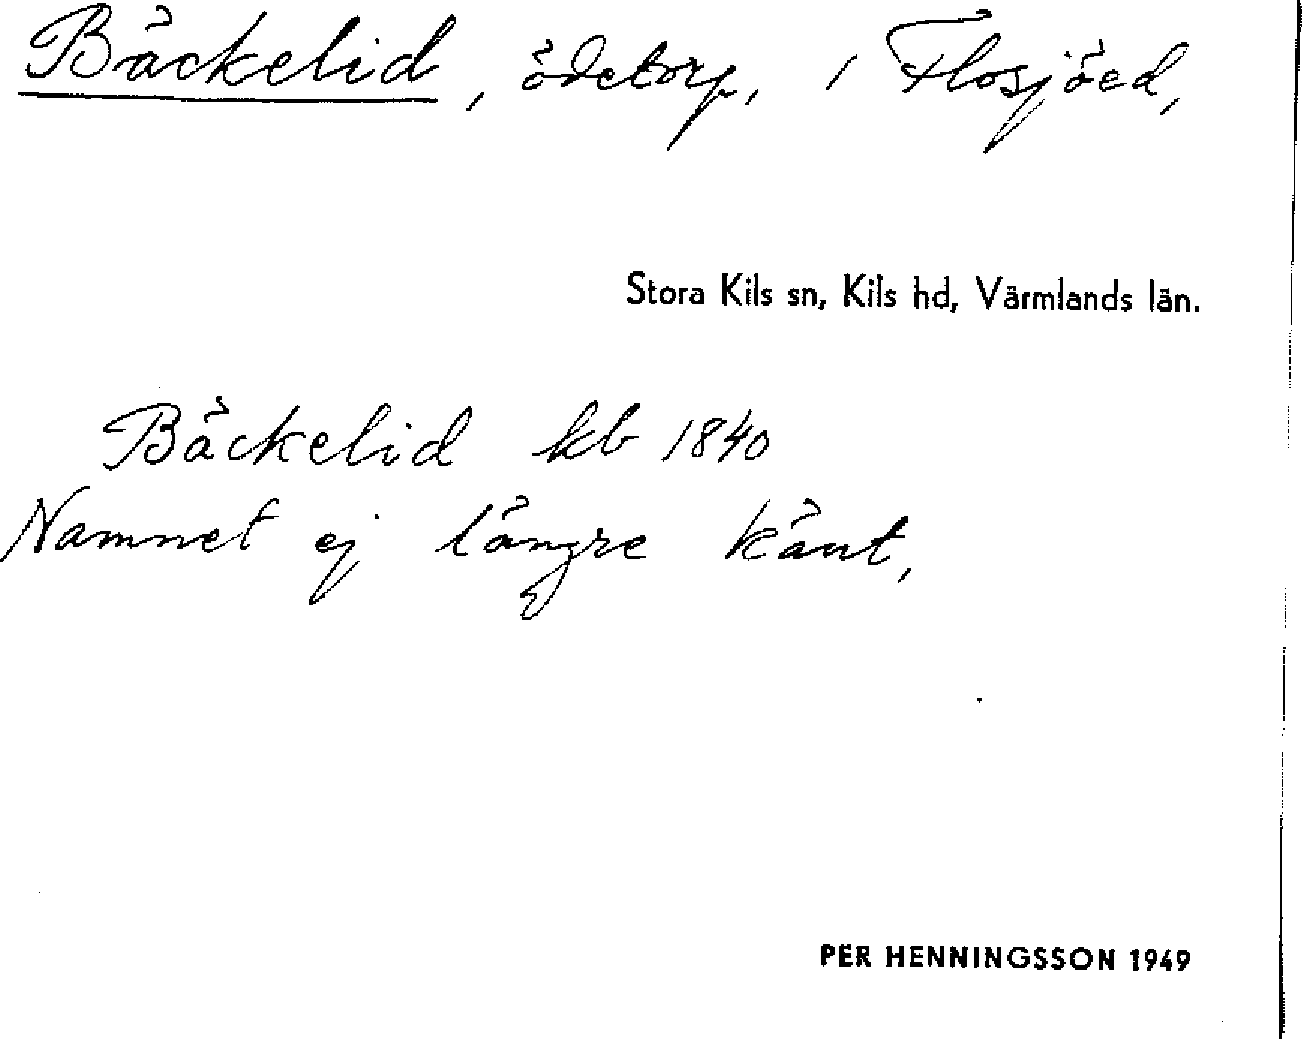 Bäckelid, ödetorp, i Flosjöed,
Stora Kils sn, Kils hd, Värmlands län.
Bäckelid kb 1840
Namnet ej längre känt,
PER HENNINGSSON 1949